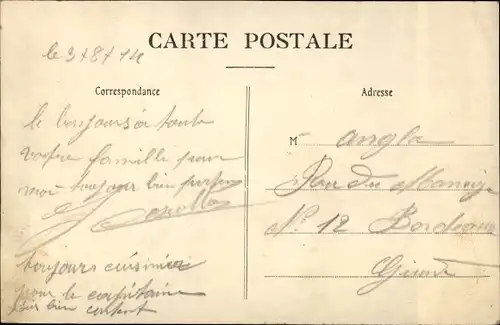 CARTE POSTALE
le 3 8 14
Correspondance
le bonjours a toute
votre famille pour
moi toujour bien
toujours cuisinier
pour le capitaine
bien content
Adresse
M Angla
Rue du Manege
N° 12 Bordeaux
Gironde